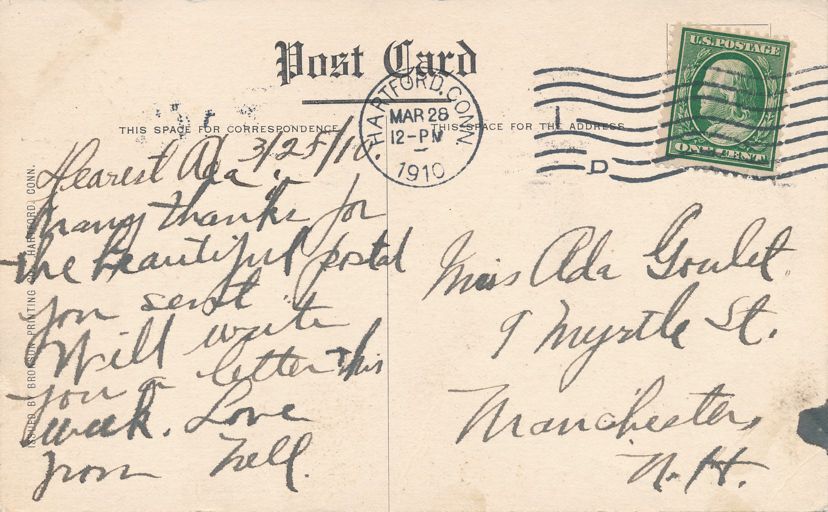 Post Card
THIS SPACE FOR CORRESPONDENCE
THIS SPACE FOR THE ADDRESS
HARTFORD, CONN.
MAR 28
12-PM
1910
D
U.S. POSTAGE
ONE CENT
ISSUED BY BRONSON PRINTING CO. HARTFORD, CONN.
3/28/10
Dearest Ada,
Many thanks for
the beautiful postal
you sent.
Will write
you a letter this
week. Love
from Nell.
Miss Ada Goulet
9 Myrtle St.
Manchester,
N.H.